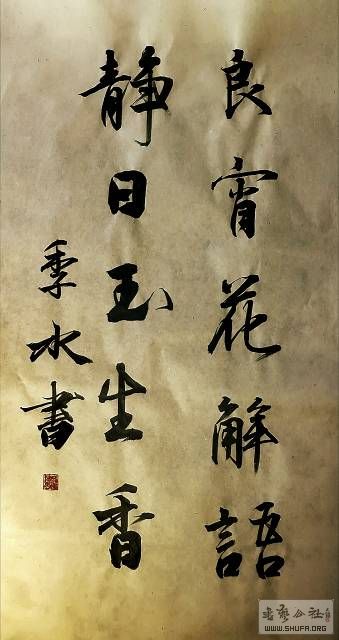 良宵花解語
靜日玉生香
季水書
WWW.SHUFA.ORG